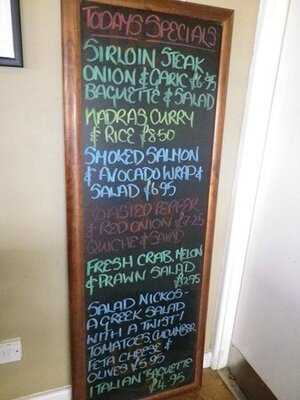 TODAYS SPECIALS
SIRLOIN STEAK
ONION & GARIC £6.95
BAGUETTE & SALAD
MADRAS CURRY
& RICE £8.50
SMOKED SALMON
& AVOCADO WRAP &
SALAD £6.95
ROASTED PEPPER
& RED ONION £7.25
QUICHE & SALAD
FRESH CRAB, MELON
& PRAWN SALAD
£12.95
SALAD NICKOS -
A GREEK SALAD
WITH A TWIST!
TOMATOES, CUCUMBER
FETA CHEESE &
OLIVES £5.95
ITALIAN BAGUETTE
£4.95